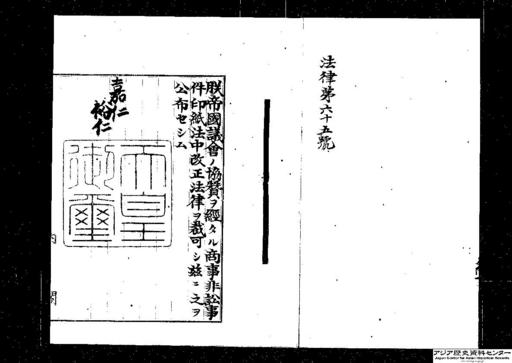 法律第六十五號
朕帝國議會ノ協贊ヲ經タル商事非訟事
件印紙法中改正法律ヲ裁可シ茲ニ之ヲ
公布セシム
嘉仁
裕仁
天皇
御璽
内閣
アジア歴史資料センター
Japan Center for Asian Historical Records